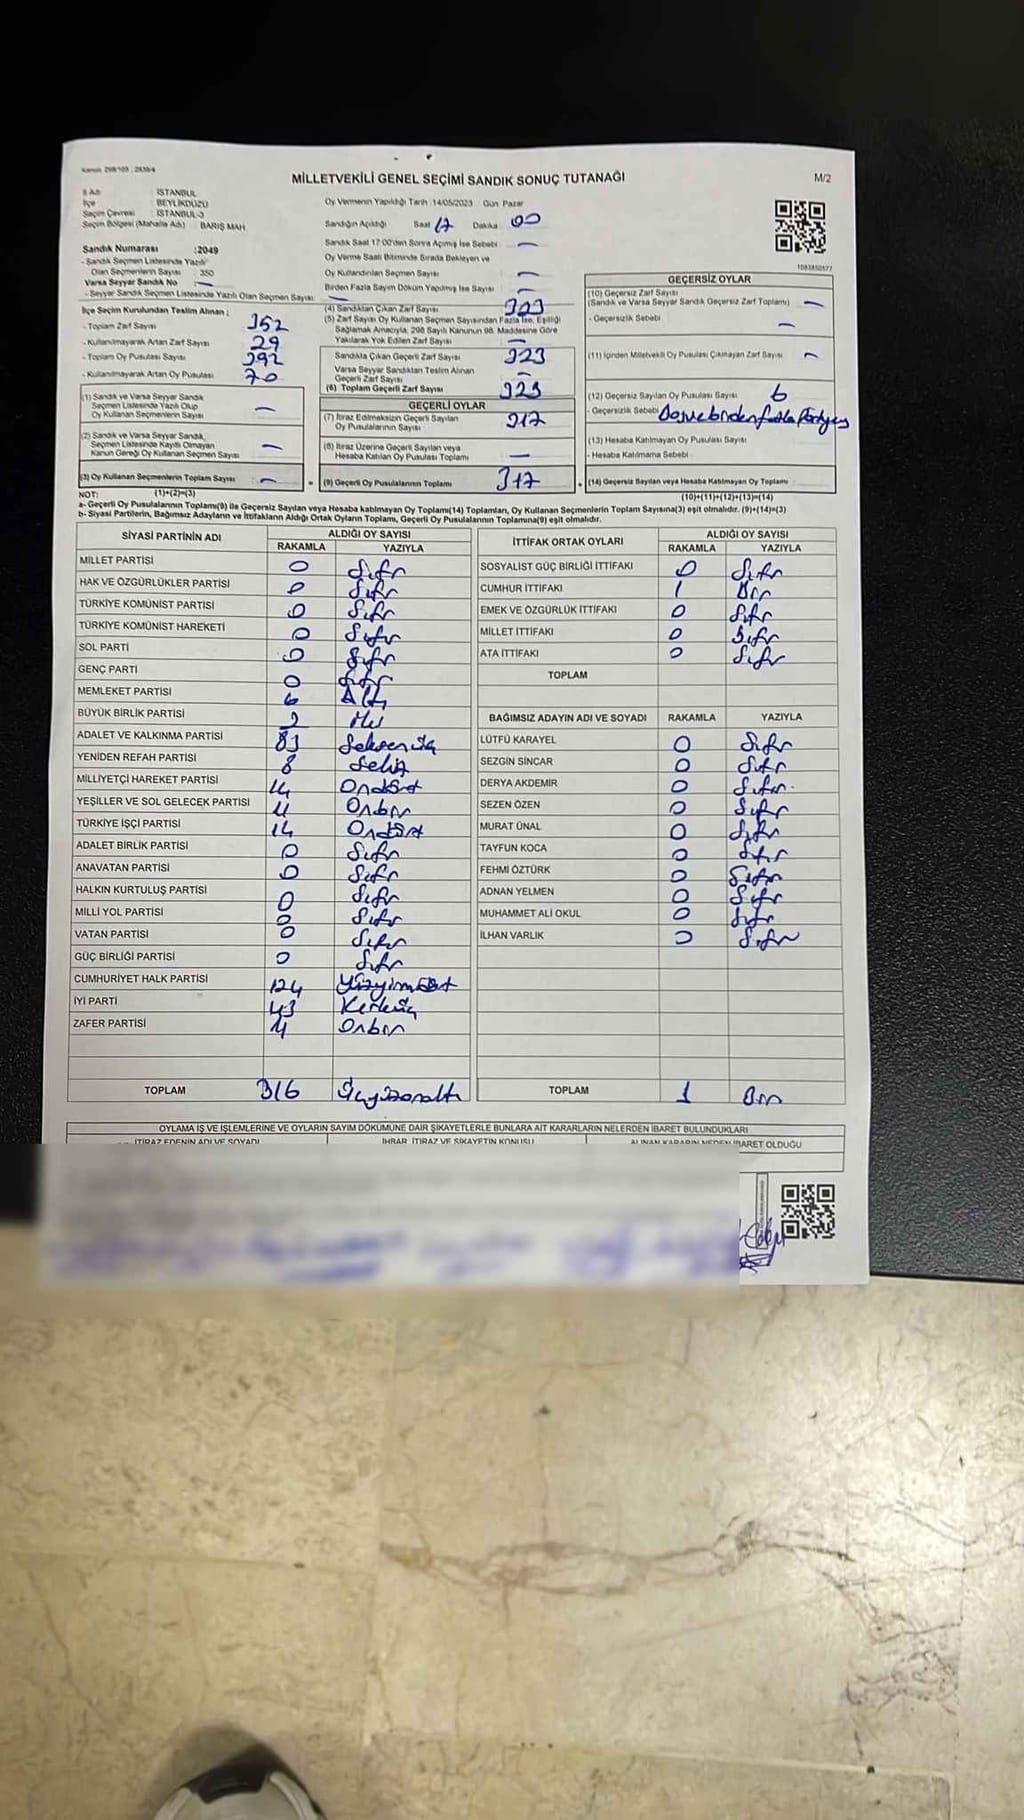 Kanun: 298/105 ; 2839/4
MİLLETVEKİLİ GENEL SEÇİMİ SANDIK SONUÇ TUTANAĞI
M/2
İl Adı : İSTANBUL
İlçe : BEYLİKDÜZÜ
Seçim Çevresi : İSTANBUL-3
Seçim Bölgesi (Mahalle Adı) : BARIŞ MAH.
Oy Vermenin Yapıldığı Tarih :14/05/2023 Gün: Pazar
Sandığın Açıldığı Saat 17 Dakika : 00
Sandık Numarası :2049
- Sandık Seçmen Listesinde Yazılı
Olan Seçmenlerin Sayısı : 350
Varsa Seyyar Sandık No : —
- Seyyar Sandık Seçmen Listesinde Yazılı Olan Seçmen Sayısı: —
Sandık Saat 17:00'den Sonra Açımış İse Sebebi : —
Oy Verme Saati Bitiminde Sırada Bekleyen ve
Oy Kullandırılan Seçmen Sayısı : —
Birden Fazla Sayım Döküm Yapılmış İse Sayısı : —
İlçe Seçim Kurulundan Teslim Alınan ;
- Toplam Zarf Sayısı : 352
- Kullanılmayarak Artan Zarf Sayısı : 29
- Toplam Oy Pusulası Sayısı : 392
- Kullanılmayarak Artan Oy Pusulası : 70
(1) Sandık ve Varsa Seyyar Sandık
Seçmen Listesinde Yazılı Olup
Oy Kullanan Seçmenlerin Sayısı : —
(2) Sandık ve Varsa Seyyar Sandık,
Seçmen Listesinde Kayıtlı Olmayan
Kanun Gereği Oy Kullanan Seçmen Sayısı : —
(3) Oy Kullanan Seçmenlerin Toplam Sayısı : —
(1)+(2)=(3)
(4) Sandıktan Çıkan Zarf Sayısı : 323
(5) Zarf Sayısı Oy Kullanan Seçmen Sayısından Fazla İse, Eşitliği
Sağlamak Amacıyla, 298 Sayılı Kanunun 98. Maddesine Göre
Yakılarak Yok Edilen Zarf Sayısı : —
Sandıkta Çıkan Geçerli Zarf Sayısı : 323
Varsa Seyyar Sandıktan Teslim Alınan
Geçerli Zarf Sayısı : —
(6) Toplam Geçerli Zarf Sayısı : 323
GEÇERLİ OYLAR
(7) İtiraz Edilmeksizin Geçerli Sayılan
Oy Pusulalarının Sayısı : 317
(8) İtiraz Üzerine Geçerli Sayılan veya
Hesaba Katılan Oy Pusulası Toplamı : —
(9) Geçerli Oy Pusulalarının Toplamı : 317
GEÇERSİZ OYLAR
(10) Geçersiz Zarf Sayısı
(Sandık ve Varsa Seyyar Sandık Geçersiz Zarf Toplamı) : —
- Geçersizlik Sebebi : —
(11) İçinden Milletvekili Oy Pusulası Çıkmayan Zarf Sayısı : —
(12) Geçersiz Sayılan Oy Pusulası Sayısı : 6
- Geçersizlik Sebebi
(13) Hesaba Katılmayan Oy Pusulası Sayısı :
- Hesaba Katılmama Sebebi :
(14) Geçersiz Sayılan veya Hesaba Katılmayan Oy Toplamı :
(10)+(11)+(12)+(13)=(14)
NOT:
a- Geçerli Oy Pusulalarının Toplamı(9) ile Geçersiz Sayılan veya Hesaba katılmayan Oy Toplamı(14) Toplamları, Oy Kullanan Seçmenlerin Toplam Sayısına(3) eşit olmalıdır. (9)+(14)=(3)
b- Siyasi Partilerin, Bağımsız Adayların ve İttifakların Aldığı Ortak Oyların Toplamı, Geçerli Oy Pusulalarının Toplamına(9) eşit olmalıdır.
SİYASİ PARTİNİN ADI ALDIĞI OY SAYISI
RAKAMLA YAZIYLA
MİLLET PARTİSİ 0 Sıfır
HAK VE ÖZGÜRLÜKLER PARTİSİ 0 Sıfır
TÜRKİYE KOMÜNİST PARTİSİ 0 Sıfır
TÜRKİYE KOMÜNİST HAREKETİ 0 Sıfır
SOL PARTİ 0 Sıfır
GENÇ PARTİ 0 Sıfır
MEMLEKET PARTİSİ 6 Altı
BÜYÜK BİRLİK PARTİSİ 2 İki
ADALET VE KALKINMA PARTİSİ 83 Seksen üç
YENİDEN REFAH PARTİSİ 8 Sekiz
MİLLİYETÇİ HAREKET PARTİSİ 14 Ondört
YEŞİLLER VE SOL GELECEK PARTİSİ 11 Onbir
TÜRKİYE İŞÇİ PARTİSİ 14 Ondört
ADALET BİRLİK PARTİSİ 0 Sıfır
ANAVATAN PARTİSİ 0 Sıfır
HALKIN KURTULUŞ PARTİSİ 0 Sıfır
MİLLİ YOL PARTİSİ 0 Sıfır
VATAN PARTİSİ 0 Sıfır
GÜÇ BİRLİĞİ PARTİSİ 0 Sıfır
CUMHURİYET HALK PARTİSİ 124 Yüzyirmidört
İYİ PARTİ 43 Kırküç
ZAFER PARTİSİ 11 Onbir
TOPLAM 316 Üçyüzonaltı
İTTİFAK ORTAK OYLARI ALDIĞI OY SAYISI
RAKAMLA YAZIYLA
SOSYALİST GÜÇ BİRLİĞİ İTTİFAKI 0 Sıfır
CUMHUR İTTİFAKI 1 Bir
EMEK VE ÖZGÜRLÜK İTTİFAKI 0 Sıfır
MİLLET İTTİFAKI 0 Sıfır
ATA İTTİFAKI 0 Sıfır
TOPLAM
BAĞIMSIZ ADAYIN ADI VE SOYADI RAKAMLA YAZIYLA
LÜTFÜ KARAYEL 0 Sıfır
SEZGİN SİNCAR 0 Sıfır
DERYA AKDEMİR 0 Sıfır
SEZEN ÖZEN 0 Sıfır
MURAT ÜNAL 0 Sıfır
TAYFUN KOCA 0 Sıfır
FEHMİ ÖZTÜRK 0 Sıfır
ADNAN YELMEN 0 Sıfır
MUHAMMET ALİ OKUL 0 Sıfır
İLHAN VARLIK 0 Sıfır
TOPLAM 1 Bir
OYLAMA İŞ VE İŞLEMLERİNE VE OYLARIN SAYIM DÖKÜMÜNE DAİR ŞİKAYETLERLE BUNLARA AİT KARARLARIN NELERDEN İBARET BULUNDUKLARI
İTİRAZ EDENİN ADI VE SOYADI İHBAR, İTİRAZ VE ŞİKAYETİN KONUSU ALINAN KARARIN NEDEN İBARET OLDUĞU